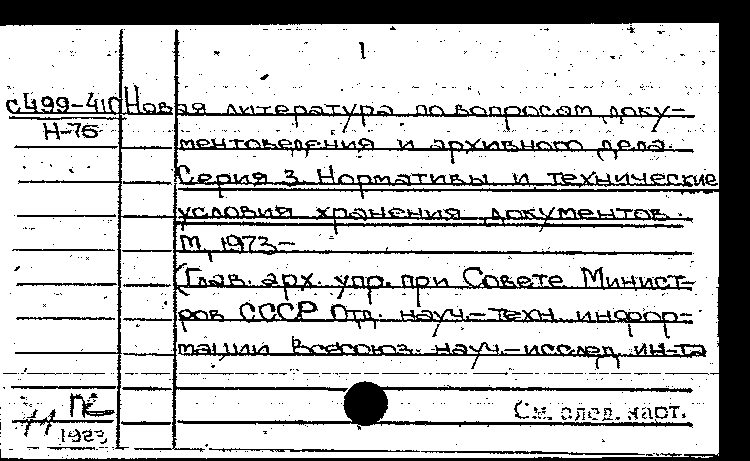 1
с499-410 Новая литература по вопросам доку-
Н-76
ментоведения и архивного дела.
Серия 3. Нормативы и технические
условия хранения документов.
М, 1973-
(Глав. арх. упр. при Совете Минист-
ров СССР Отд. науч.-техн. инфор-
мации Всесоюз. науч.-исслед. ин-та
См. след. карт.
1983